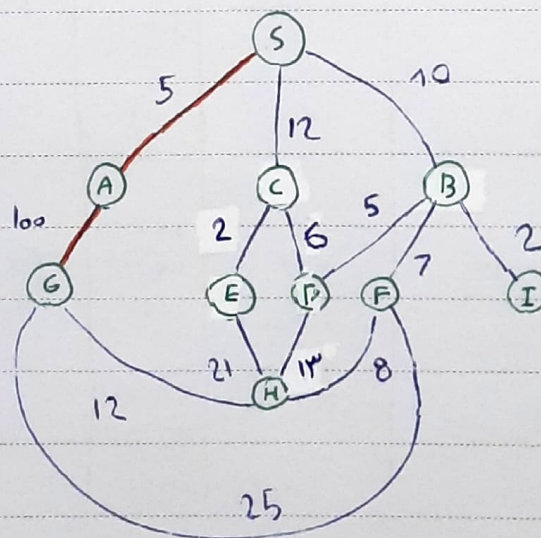 S
5
10
12
A
C
B
100
2
6
5
7
2
G
E
D
F
I
21
۱۳
8
H
12
25